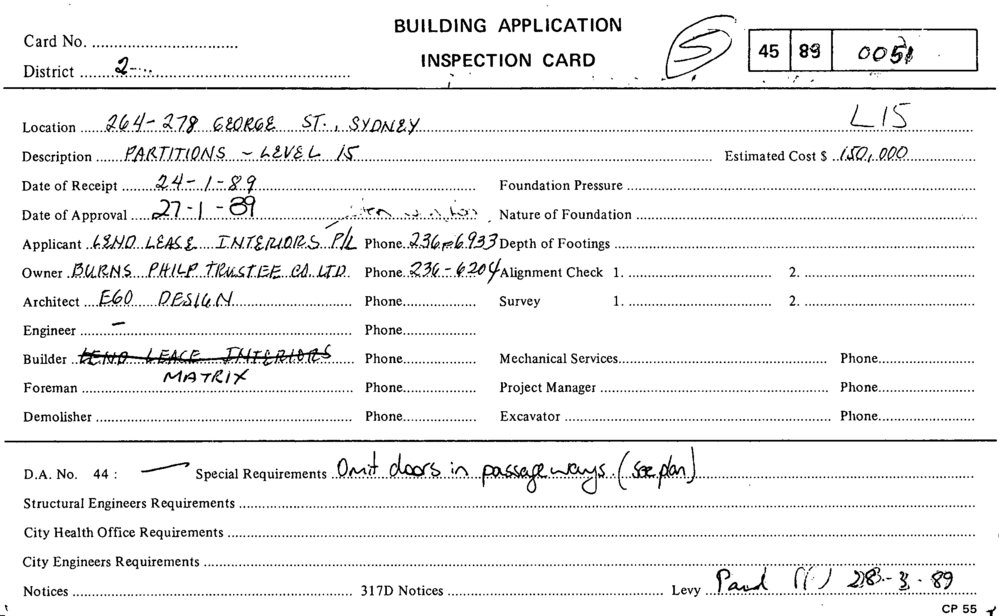 BUILDING APPLICATION
INSPECTION CARD
Card No.
District 2
5
45 89 0051
Location 264-278 GEORGE ST., SYDNEY L15
Description PARTITIONS - LEVEL 15 Estimated Cost $ 150,000
Date of Receipt 24-1-89 Foundation Pressure
Date of Approval 27-1-89 Nature of Foundation
Applicant LEND LEASE INTERIORS P/L Phone 236-6933 Depth of Footings
Owner BURNS PHILP TRUSTEE CO. LTD. Phone 236-6204 Alignment Check 1. 2.
Architect EGO DESIGN Phone Survey 1. 2.
Engineer - Phone
Builder LEND LEACE INTERIORS Phone Mechanical Services Phone
MATRIX
Foreman Phone Project Manager Phone
Demolisher Phone Excavator Phone
D.A. No. 44 : — Special Requirements Omit doors in passageways. (see plan)
Structural Engineers Requirements
City Health Office Requirements
City Engineers Requirements
Notices 317D Notices Levy Paid 28-3-89
CP 55